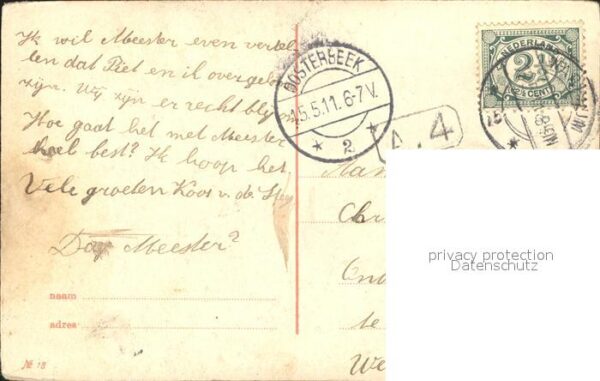 Ik wil Meester even vertel-
len dat Piet en ik over gebl
zijn. Wij zijn er recht blij
Hoe gaat het met Meester
heel best? Ik hoop het.
Vele groeten Koos v. d.
Dag Meester?
naam
adres
№ 18
OOSTERBEEK
5.5.11. 6-7 V.
* 2 *
4
NEDERLAND
2½
2½ CENT
Aan
Chr
On
te
We
privacy protection
Datenschutz